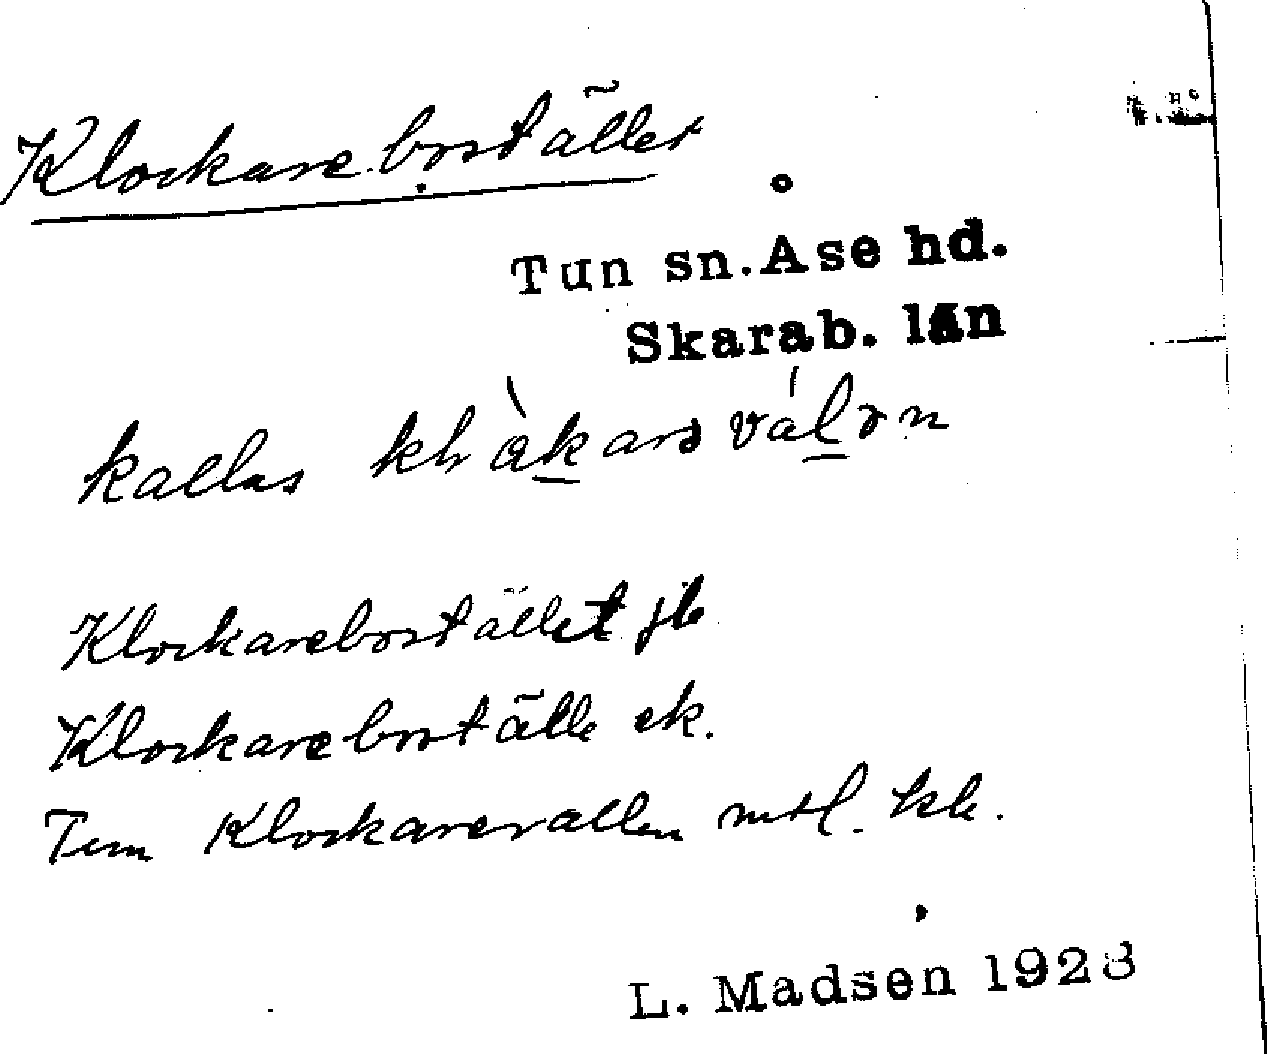 Klockarebostället
Tun sn. Åse hd.
Skarab. län
kallas
Klockarebostället jb
Klockareboställe ek.
Tun Klockarevallen mtl. kk.
L. Madsen 1928